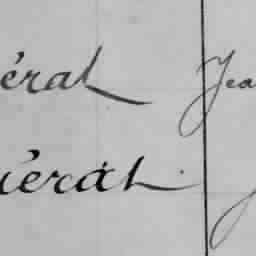 éral Jea
iéral